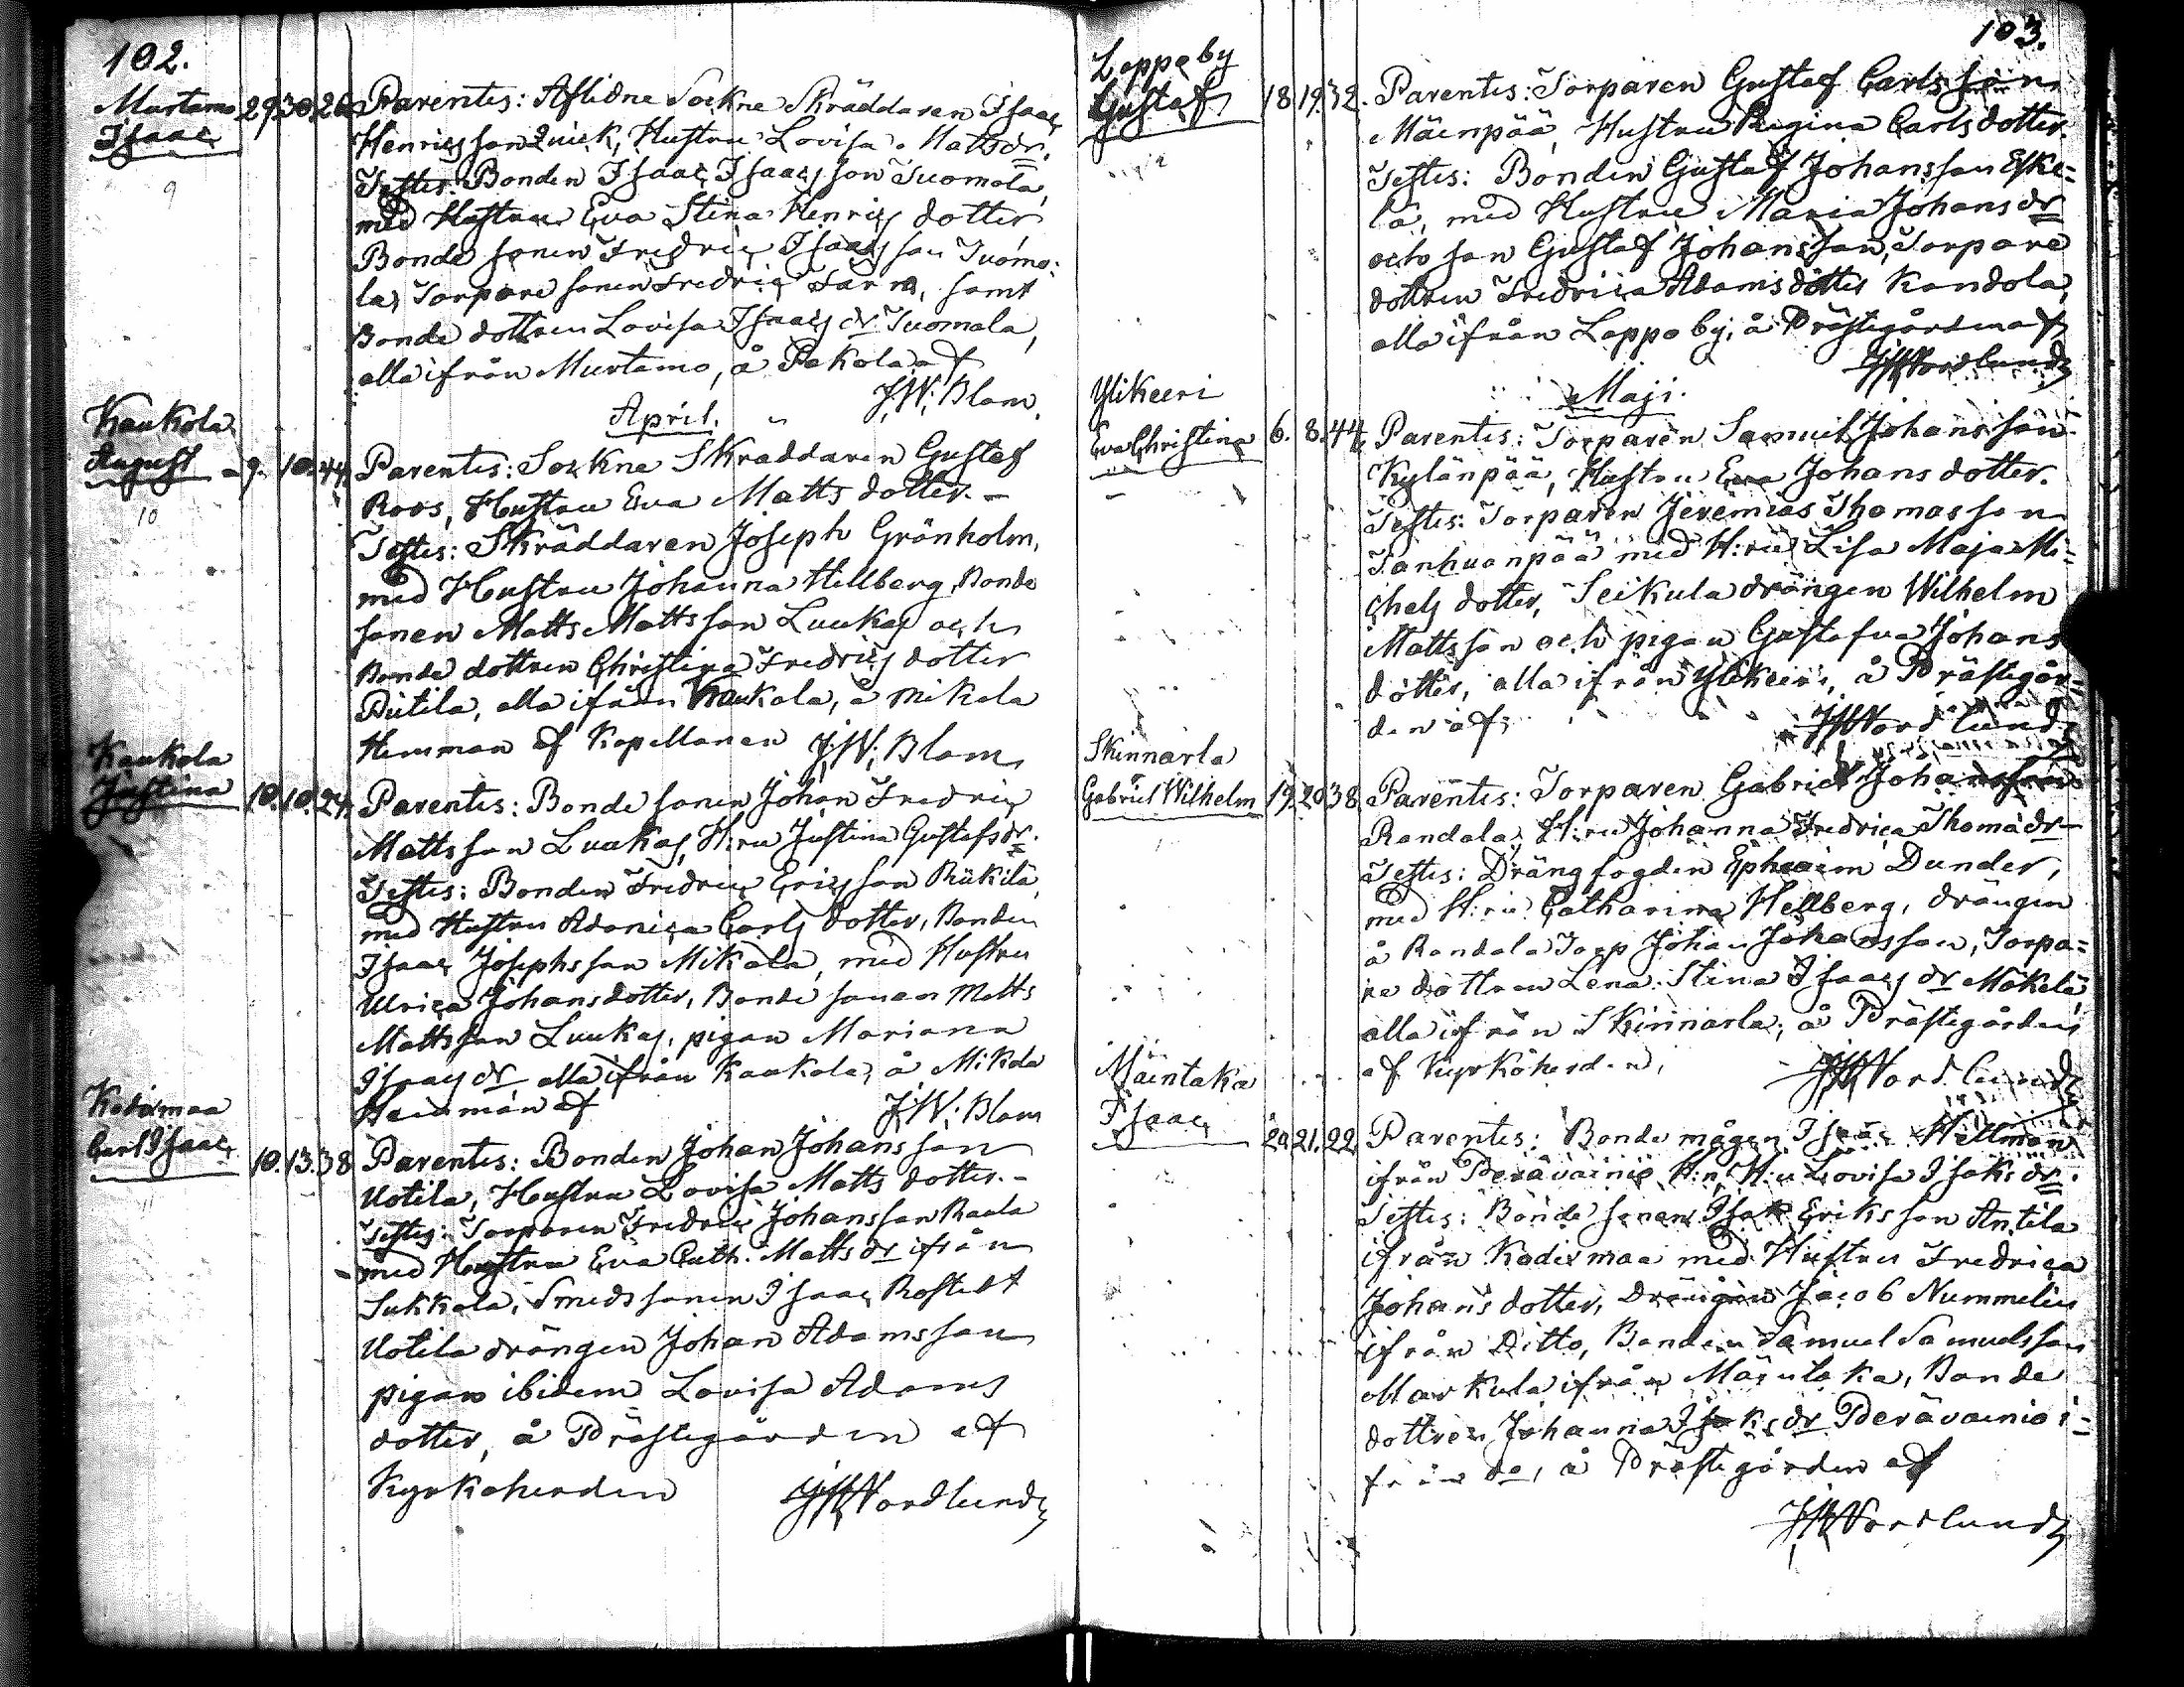 102.
Murtamo
Isaac
29. 30. 26.
Parentes: Aflidne Sockne Skräddaren Isaac
Henricsson Quick, Hustru Lovisa Matsdr.
Testes: Bonden Isaac Isaacsson Tuomola,
med Hustru Eva Stina Henrics dotter
Bonde sonen Fredric Isaacsson Tuomo-
la, Torpare sonen Fredric Färm, samt
Bonde dottren Lovisa Isaacs dr Tuomala,
alla ifrån Murtamo, å Pakola af
J.W. Blom.
9
April.
Kaukola
August
9. 10. 44.
Parentes: Sockne Skräddaren Gustaf
Roos, Hustru Eva Matts dotter. -
Testes: Skräddaren Joseph Grönholm,
med Hustru Johanna Hellberg, Bonde
sonen Matts Mattsson Luukas och
Bonde dottren Christina Fredrics dotter
Piitila, alla ifrån Kaukola, å Mikola
Hemman af Kapellanen J.W. Blom
10
Kaukola
Justina
10. 10. 24.
Parentes: Bonde sonen Johan Fredric
Mattsson Luukas, H:ru Justina Gustafsdr.
Testes: Bonden Fredric Ericsson Riikilä,
med Hustru Adamica Carls dotter, Bonden
Isaac Josephsson Mikola, med Hustru
Ulrica Johansdotter, Bonde sonen Matts
Mattsson Luukas, pigan Mariana
Isaacs dr alla ifrån Kaukola, å Mikola
Hemman af J.W. Blom
Kodixmaa
Carl Isaac
10. 13. 38
Parentes: Bonden Johan Johansson
Uotila, Hustru Lovisa Matts dotter. -
Testes: Torparen Fredric Johansson Raala
med Hustru Eva Cath. Matts dr ifrån
Sukkala, Smeds sonen Isaac Rostedt
Uotila drängen Johan Adamsson
pigan ibidem Lovisa Adams
dotter, å Prästegården af
Kyrkoherden JHNordlund
11
103.
Loppo by
Gustaf
18. 19. 32.
Parentes: Torparen Gustaf Carlsson
Mäenpää, Hustru Regina Carlsdotter.
Testes: Bonden Gustaf Johansson Eske-
lä, med Hustru Maria Johans dr
och son Gustaf Johansson, Torpare
dottren Fredrica Adamsdotter Kandola,
alla ifrån Loppo by, å Prästegården af
JHNordlund
Maji.
Ylikeeri
Eva Christina
6. 8. 44.
Parentes: Torparen Samuel Johansson
Kylänpää, Hustru Eva Johans dotter.
Testes: Torparen Jeremias Thomasson
Tanhuanpää med H:ru Lisa Maja Mi-
chels dotter, Seikula drängen Wilhelm
Mattsson och pigan Gustafva Johans
dotter, alla ifrån Ylikeeri, å Prästegår-
den af JHNordlund
Skinnarla
Gabriel Wilhelm
19. 20. 38.
Parentes: Torparen Gabriel Johansson
Randala, H:ru Johanna Fredrica Thomædr
Testes: Drängfogden Ephraim Dunder,
med H:ru Catharina Hellberg, drängen
å Randala Torp Johan Johansson, Torpa-
re dottren Lena Stina Isaacs dr Mäkelä,
alla ifrån Skinnarla, å Prästegården
af Kyrkoherden, JHNordlund
Mäentaka
Isaac
20. 21. 22.
Parentes: Bonde mågen Isaac Hellman
ifrån Perävainio H:n, H:u Lovisa Isaksdr.
Testes: Bonde sonen Isak Eriksson Antila
ifrån Kodixmaa med Hustru Fredrica
Johans dotter, Drängen Jacob Nummelin
ifrån Ditto, Bonden Samuel Samuelsson
Markula ifrån Mäentaka, Bonde
dottren Johanna Isaks dr Perävainio i-
från do, å Prästegården af
JHNordlund